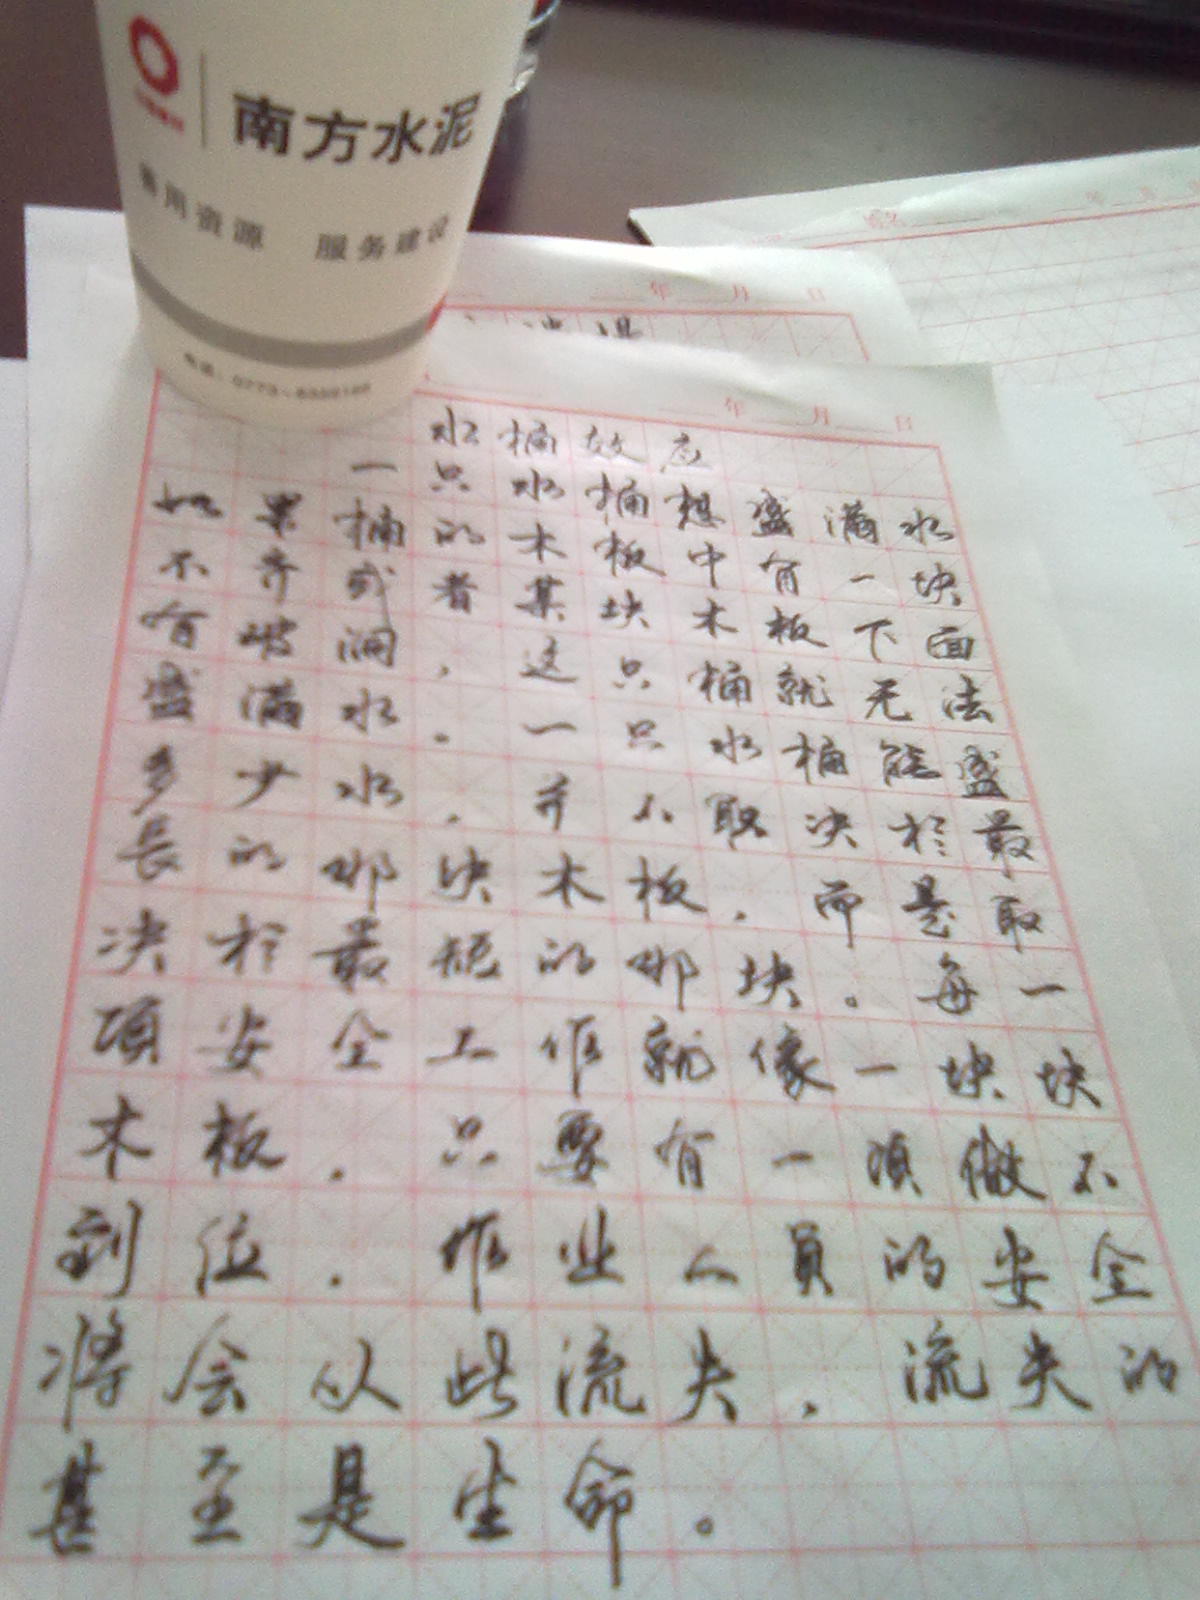 南方水泥
善用资源 服务建设
年 月 日
年 月 日
年 月 日
水桶效应
一只水桶想盛满水
如果桶的木板中有一块
不齐或者某块木板下面
有破洞，这只桶就无法
盛满水。一只水桶能盛
多少水，并不取决於最
長的那块木板，而是取
决於最短的那块。每一
項安全工作就像一块块
木板，只要有一項做不
到位，作业人员的安全
将会从此流失，流失的
甚至是生命。